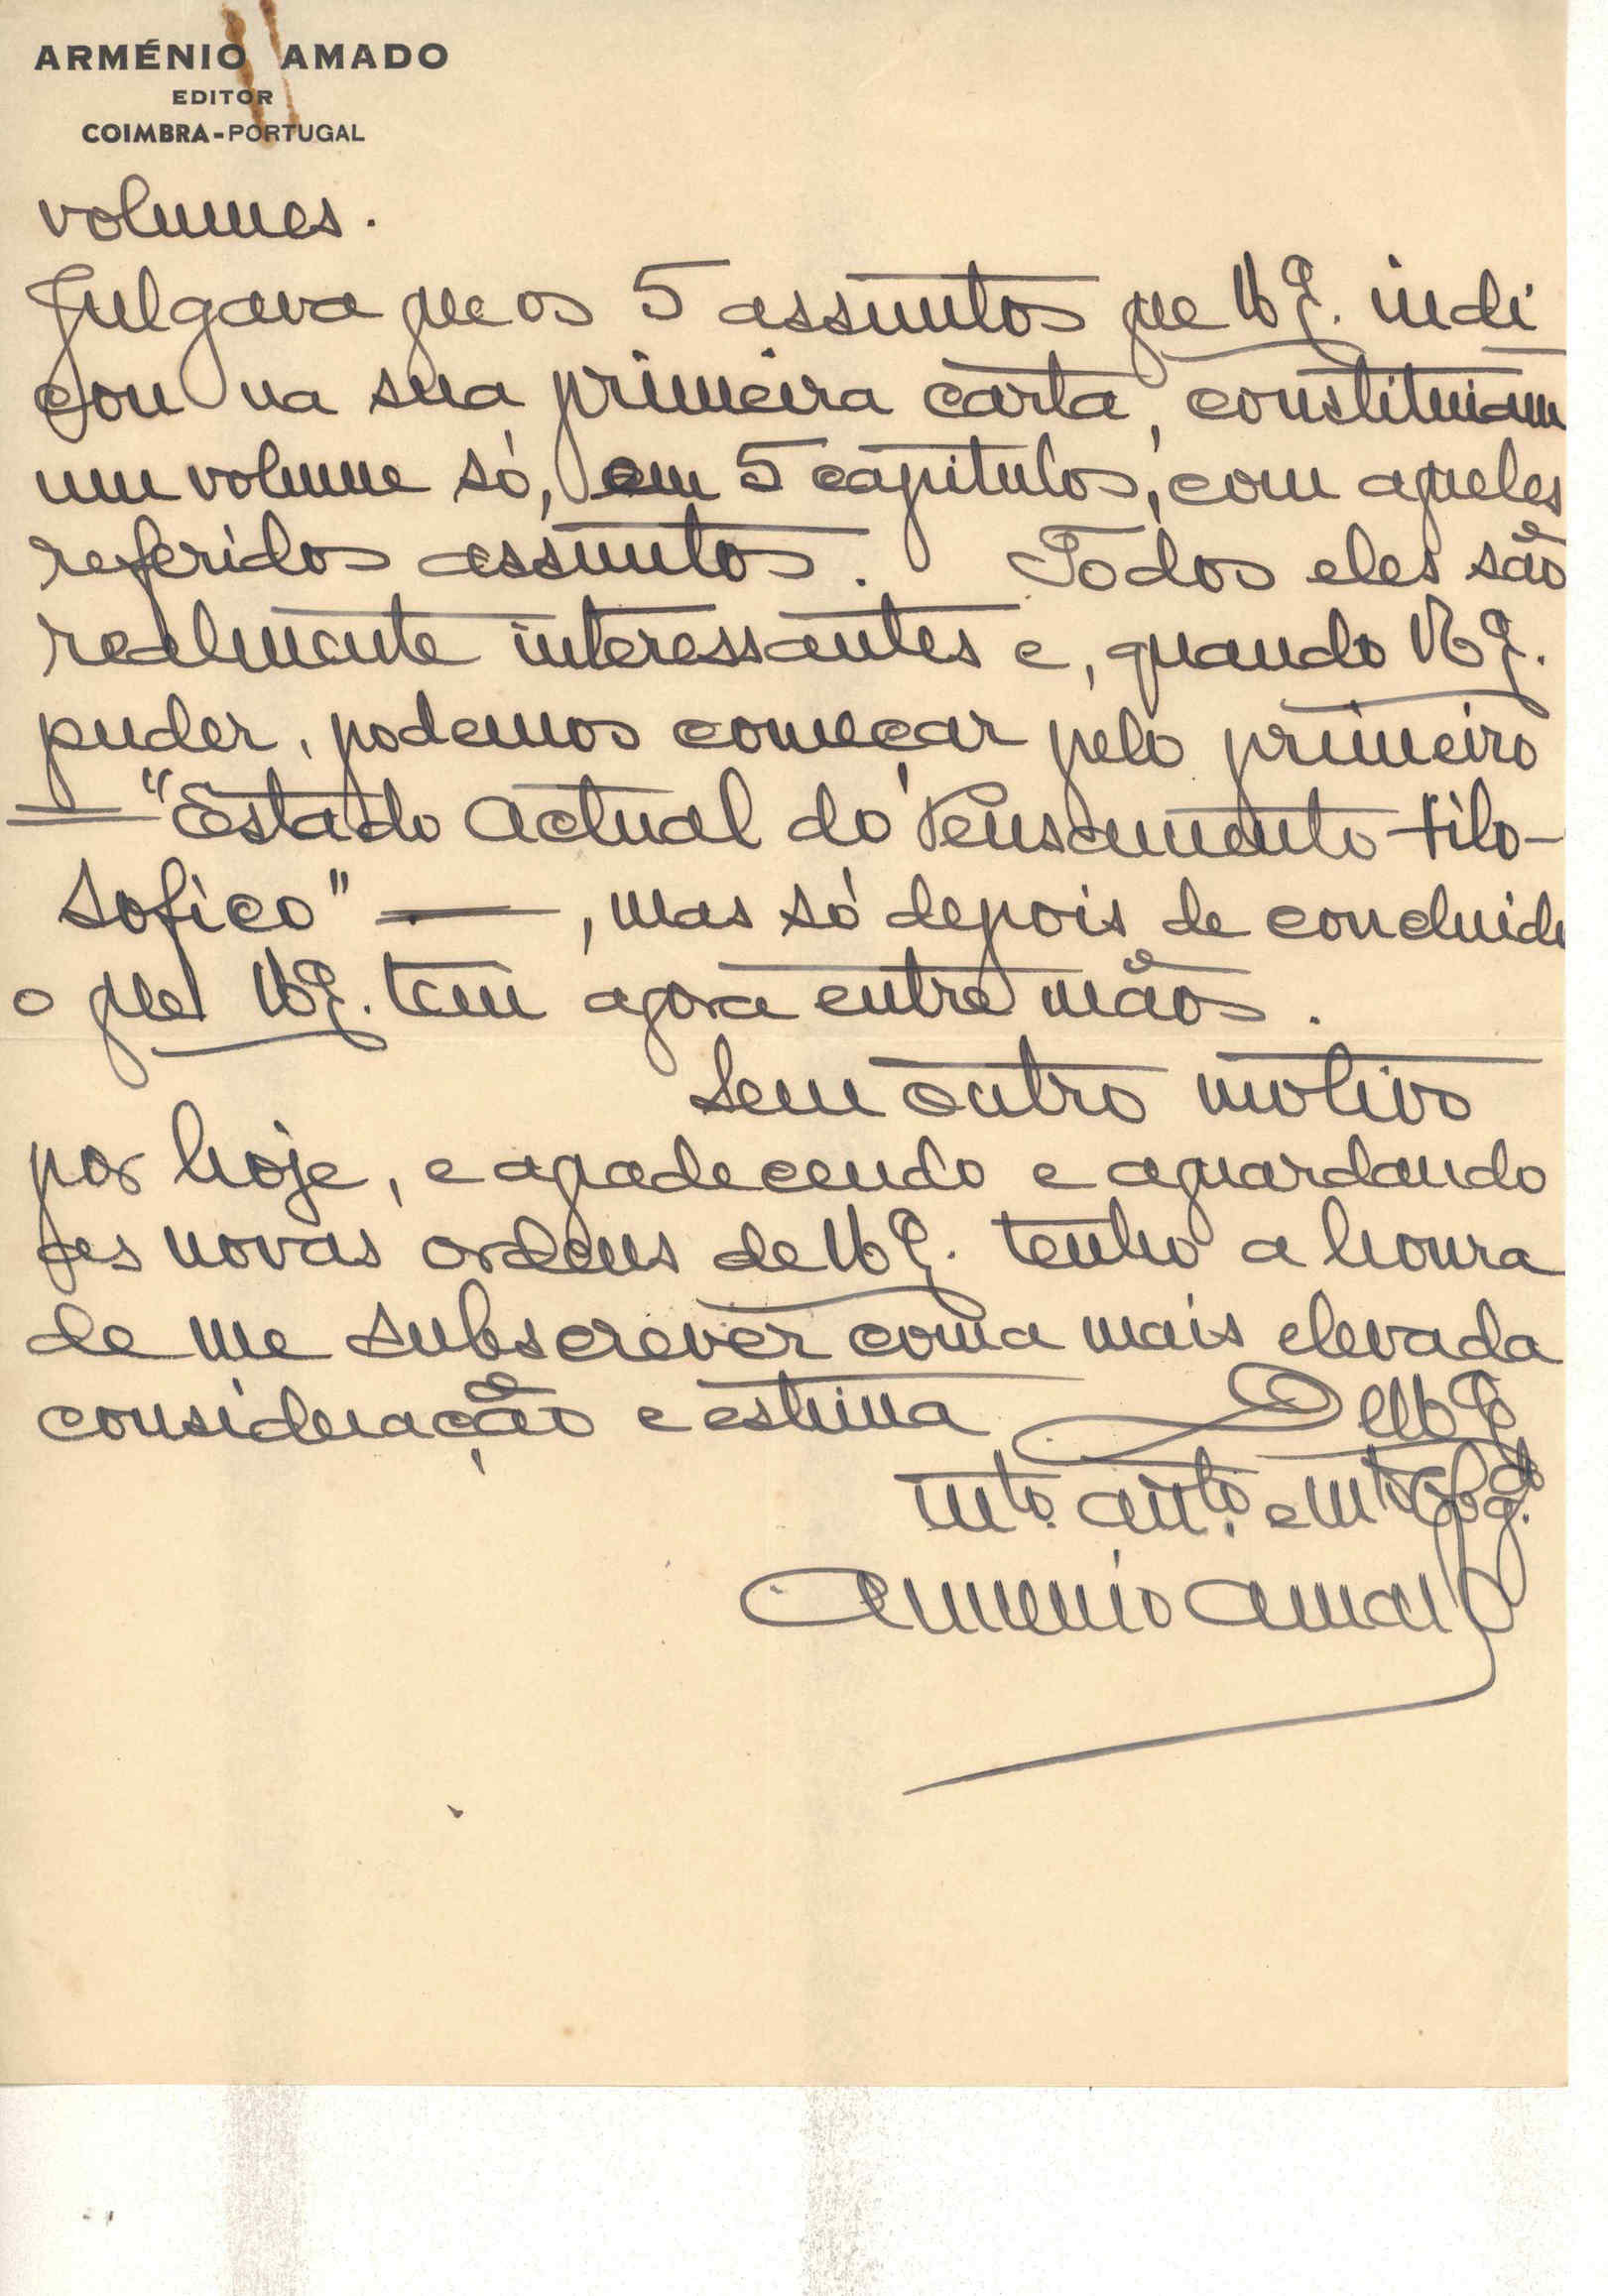 ARMÉNIO AMADO
EDITOR
COIMBRA-PORTUGAL
volumes.
Julgava que os 5 assuntos que V. Ex.ª indi
cou na sua primeira carta, constituiam
um volume só, em 5 capitulos, com aqueles
referidos assuntos. Todos eles são
realmente interessantes e, quando V. Ex.ª
puder, podemos começar pelo primeiro
— "Estado Actual do Pensamento Filo-
sofico" —, mas só depois de concluido
o que V. Ex.ª tem agora entre mãos.
Sem outro motivo
por hoje, e agradecendo e aguardando
as novas ordens de V. Ex.ª tenho a honra
de me subscrever com a mais elevada
consideração e estima De V. Ex.ª
mto. atto. e mto. obgdo.
Armenio Amado